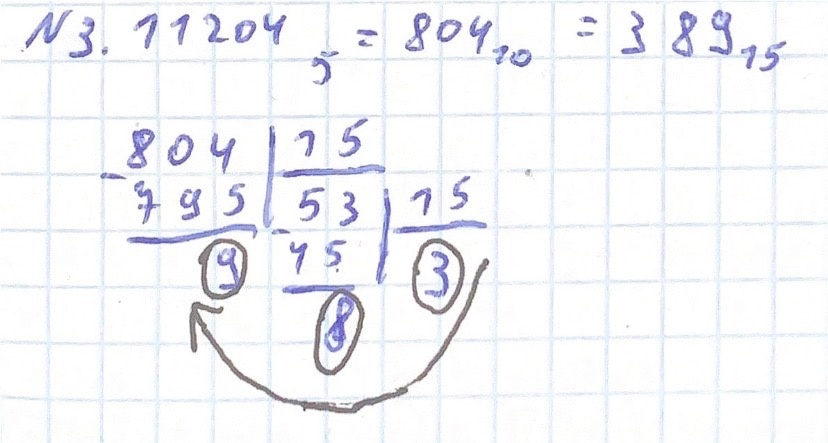 N3. 11204₅ = 804₁₀ = 389₁₅
804 | 15
- 795 | 53 | 15
9 - 45 | 3
8